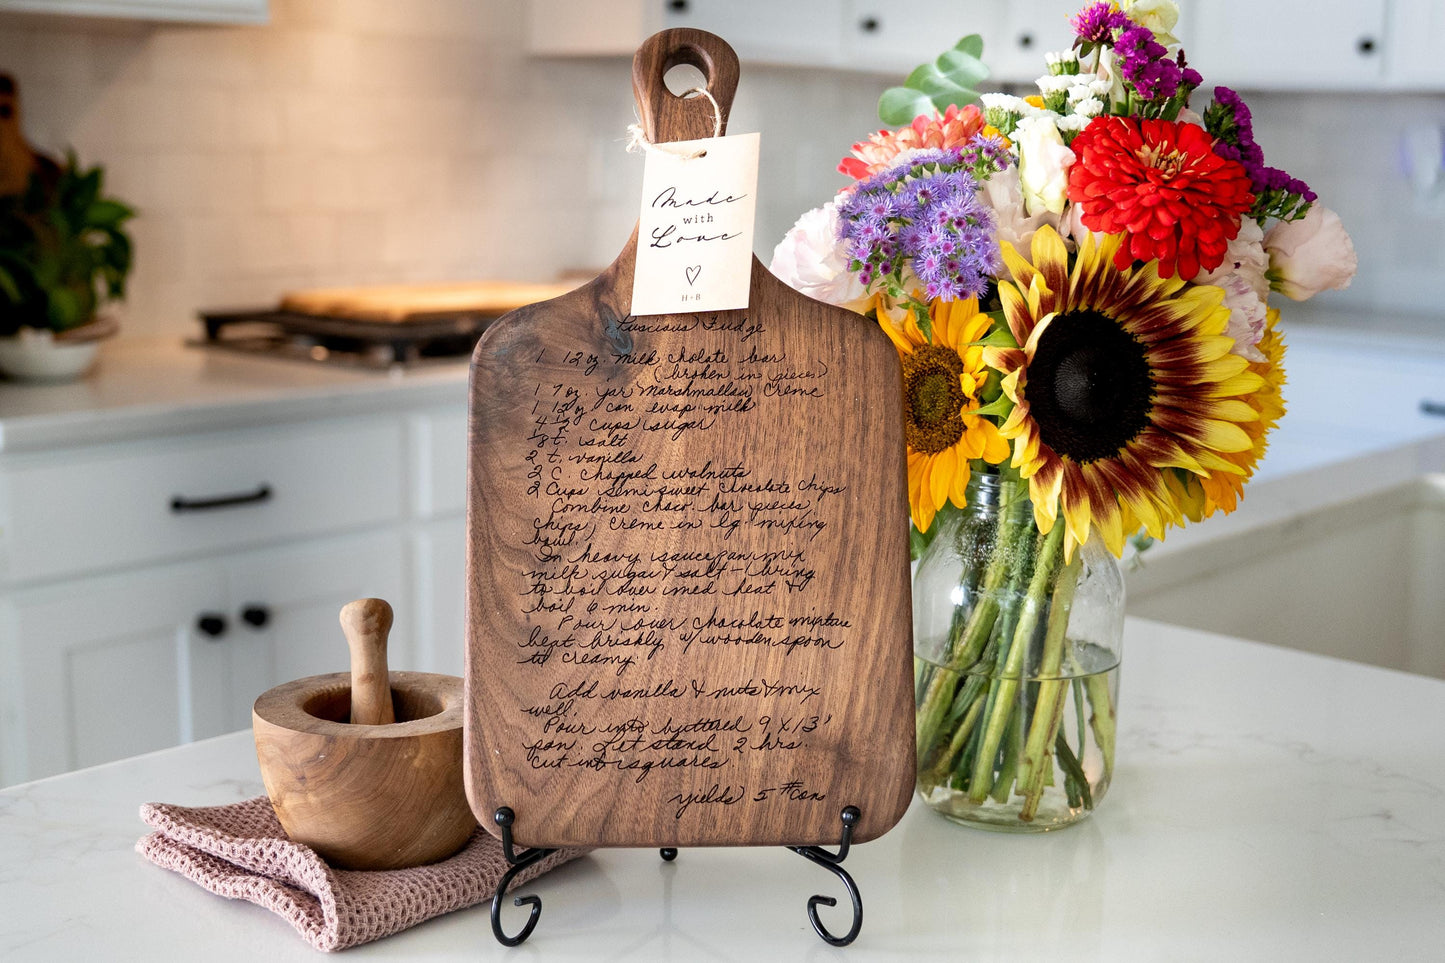 Made
with
Love
H + B
Luscious Fudge
1 12 oz. milk cholate bar
(broken in pieces)
1 7 oz. jar Marshmallow Creme
1 12 oz can evap milk
4 1/2 cups sugar
1/8 t. salt
2 t. vanilla
2 C chopped walnuts
2 Cups semi sweet chocolate chips
Combine choco. bar pieces
chips, creme in lg. mixing
bowl.
In heavy sauce pan mix
milk sugar & salt - bring
to boil over med heat &
boil 6 min.
Pour over chocolate mixture
beat briskly w/ wooden spoon
til creamy.
Add vanilla & nuts & mix
well.
Pour into buttered 9 x 13"
pan. Let stand 2 hrs.
cut into squares.
yields 5 #